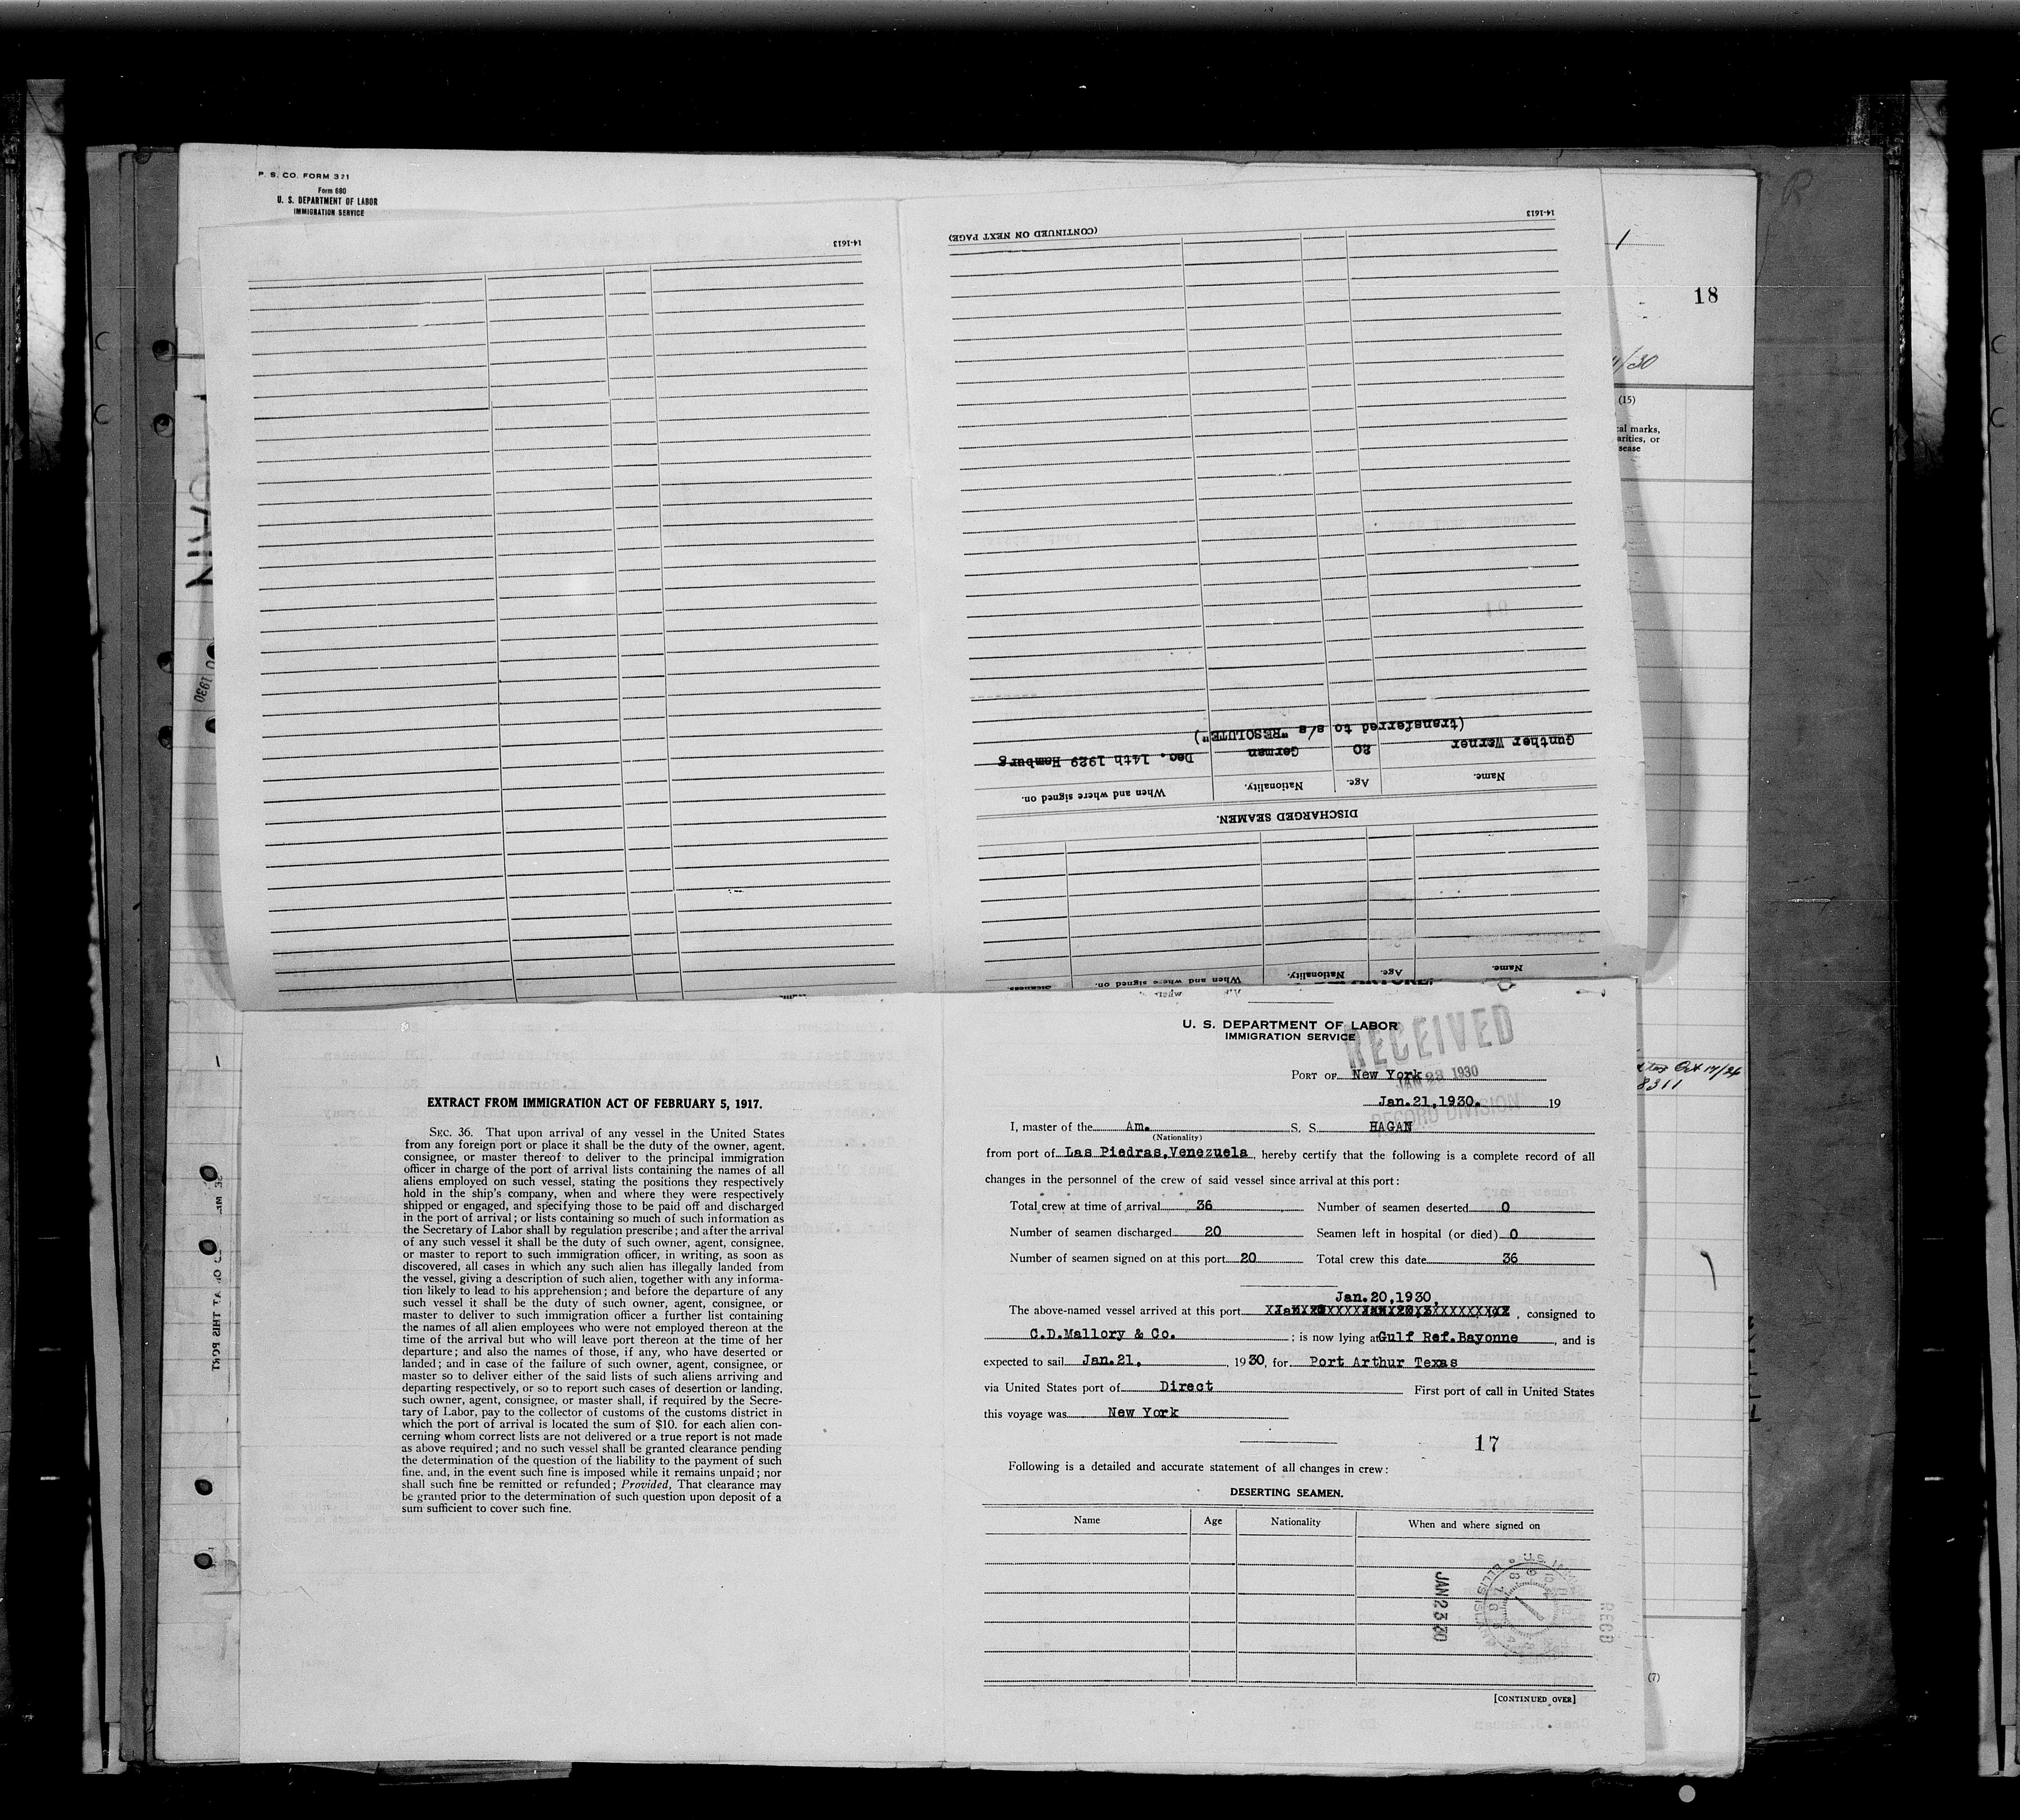 P. S. CO. FORM 321
Form 680
U. S. DEPARTMENT OF LABOR
IMMIGRATION SERVICE
14-1613
14-1613
(CONTINUED ON NEXT PAGE)
18
(15)
cal marks,
arities, or
sease
(transferred to s/s "RESOLUTE")
Gunther Werner 20 German Dec. 14th 1929 Hamburg
Name. Age. Nationality. When and where signed on.
DISCHARGED SEAMEN.
Name. Age. Nationality. When and where signed on. Sickness
U. S. DEPARTMENT OF LABOR
IMMIGRATION SERVICE
RECEIVED
JAN 23 1930
RECORD DIVISION
PORT OF New York
Jan.21,1930. 19
I, master of the Am. S. S. HAGAN
(Nationality)
from port of Las Piedras,Venezuela, hereby certify that the following is a complete record of all
changes in the personnel of the crew of said vessel since arrival at this port:
Total crew at time of arrival 36 Number of seamen deserted 0
Number of seamen discharged 20 Seamen left in hospital (or died) 0
Number of seamen signed on at this port 20 Total crew this date 36
Jan.20,1930,
The above-named vessel arrived at this port , consigned to
C.D.Mallory & Co. ; is now lying at Gulf Ref.Bayonne, and is
expected to sail Jan.21, , 1930, for Port Arthur Texas
via United States port of Direct First port of call in United States
this voyage was New York
17
Following is a detailed and accurate statement of all changes in crew:
DESERTING SEAMEN.
Name Age Nationality When and where signed on
JAN 23 30
RECD
[CONTINUED OVER]
(7)
EXTRACT FROM IMMIGRATION ACT OF FEBRUARY 5, 1917.
SEC. 36. That upon arrival of any vessel in the United States
from any foreign port or place it shall be the duty of the owner, agent,
consignee, or master thereof to deliver to the principal immigration
officer in charge of the port of arrival lists containing the names of all
aliens employed on such vessel, stating the positions they respectively
hold in the ship's company, when and where they were respectively
shipped or engaged, and specifying those to be paid off and discharged
in the port of arrival; or lists containing so much of such information as
the Secretary of Labor shall by regulation prescribe; and after the arrival
of any such vessel it shall be the duty of such owner, agent, consignee,
or master to report to such immigration officer, in writing, as soon as
discovered, all cases in which any such alien has illegally landed from
the vessel, giving a description of such alien, together with any informa-
tion likely to lead to his apprehension; and before the departure of any
such vessel it shall be the duty of such owner, agent, consignee, or
master to deliver to such immigration officer a further list containing
the names of all alien employees who were not employed thereon at the
time of the arrival but who will leave port thereon at the time of her
departure; and also the names of those, if any, who have deserted or
landed; and in case of the failure of such owner, agent, consignee, or
master so to deliver either of the said lists of such aliens arriving and
departing respectively, or so to report such cases of desertion or landing,
such owner, agent, consignee, or master shall, if required by the Secre-
tary of Labor, pay to the collector of customs of the customs district in
which the port of arrival is located the sum of $10. for each alien con-
cerning whom correct lists are not delivered or a true report is not made
as above required; and no such vessel shall be granted clearance pending
the determination of the question of the liability to the payment of such
fine, and, in the event such fine is imposed while it remains unpaid; nor
shall such fine be remitted or refunded; Provided, That clearance may
be granted prior to the determination of such question upon deposit of a
sum sufficient to cover such fine.